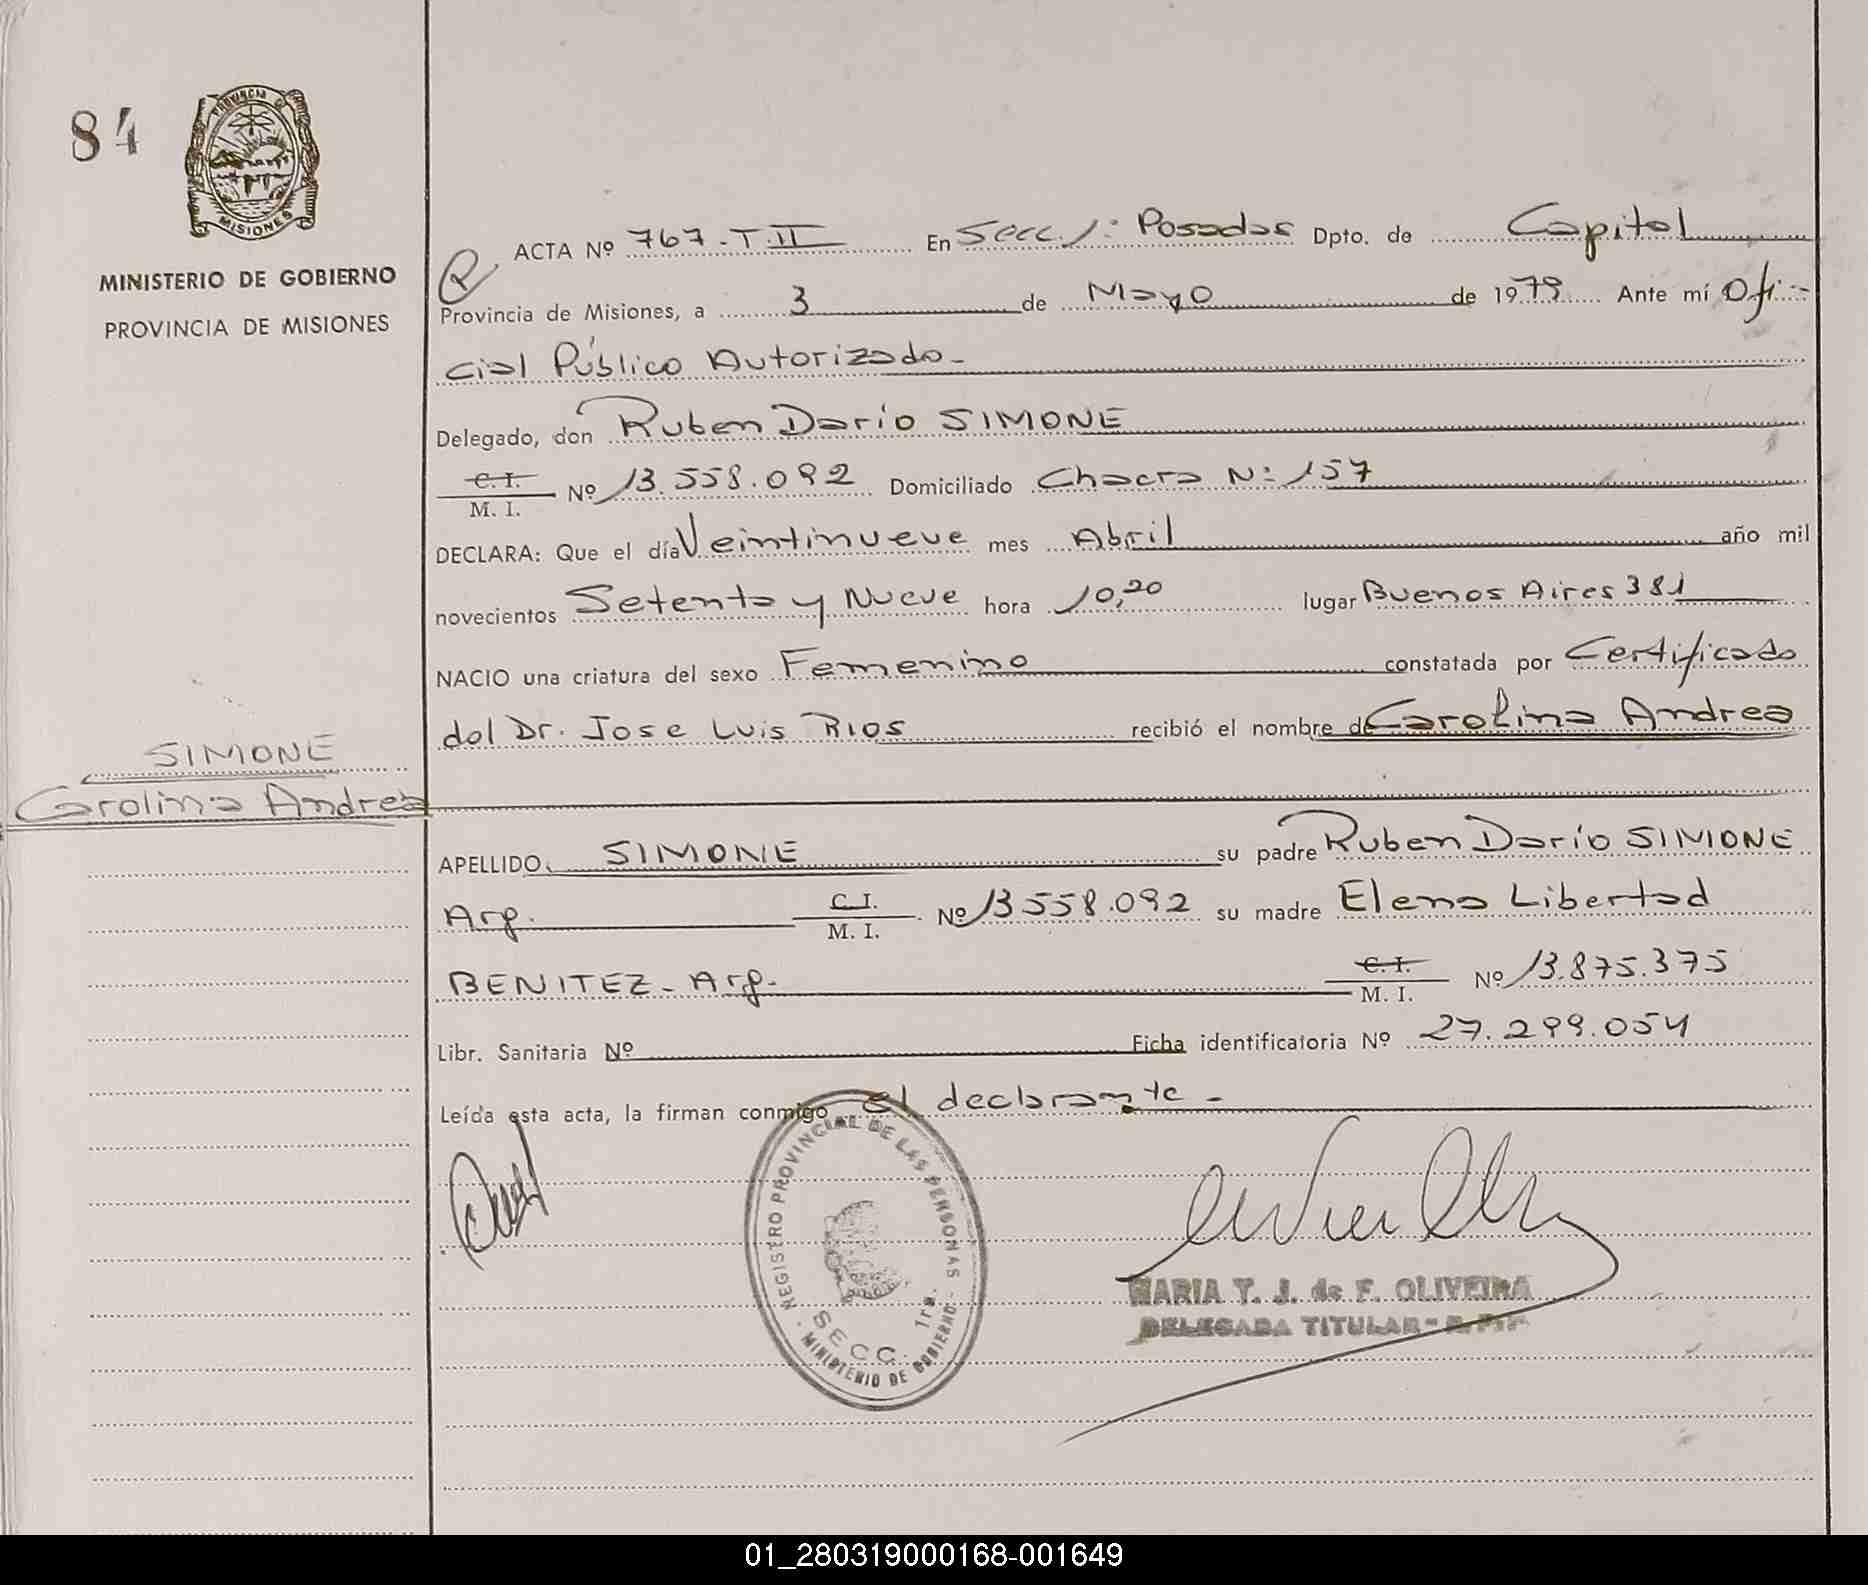 84
PROVINCIA DE
MISIONES
MINISTERIO DE GOBIERNO
PROVINCIA DE MISIONES
ACTA Nº 767-T.II En Secc. 1: Posadas Dpto. de Capital
Provincia de Misiones, a 3 de Mayo de 1979 Ante mí Ofi-
cial Público Autorizado-
Delegado, don Ruben Dario SIMONE
C.I.
M. I. Nº 13.558.092 Domiciliado Chacra Nº 157
DECLARA: Que el día Veintinueve mes Abril año mil
novecientos Setenta y Nueve hora 10,20 lugar Buenos Aires 381
NACIO una criatura del sexo Femenino constatada por Certificado
del Dr. Jose Luis RIOS recibió el nombre de Carolina Andrea
SIMONE
Carolina Andrea
APELLIDO SIMONE su padre Ruben Darío SIMONE
Arg. C.I.
M. I. Nº 13558.092 su madre Elena Libertad
BENITEZ- Arg. C.I.
M. I. Nº 13.875.375
Libr. Sanitaria Nº Ficha identificatoria Nº 27.299.054
Leída esta acta, la firman conmigo el declarante-
REGISTRO PROVINCIAL DE LAS PERSONAS
SECC. 1ra.
MINISTERIO DE GOBIERNO
MARIA T. J. de F. OLIVEIRA
DELEGADA TITULAR-
01_280319000168-001649